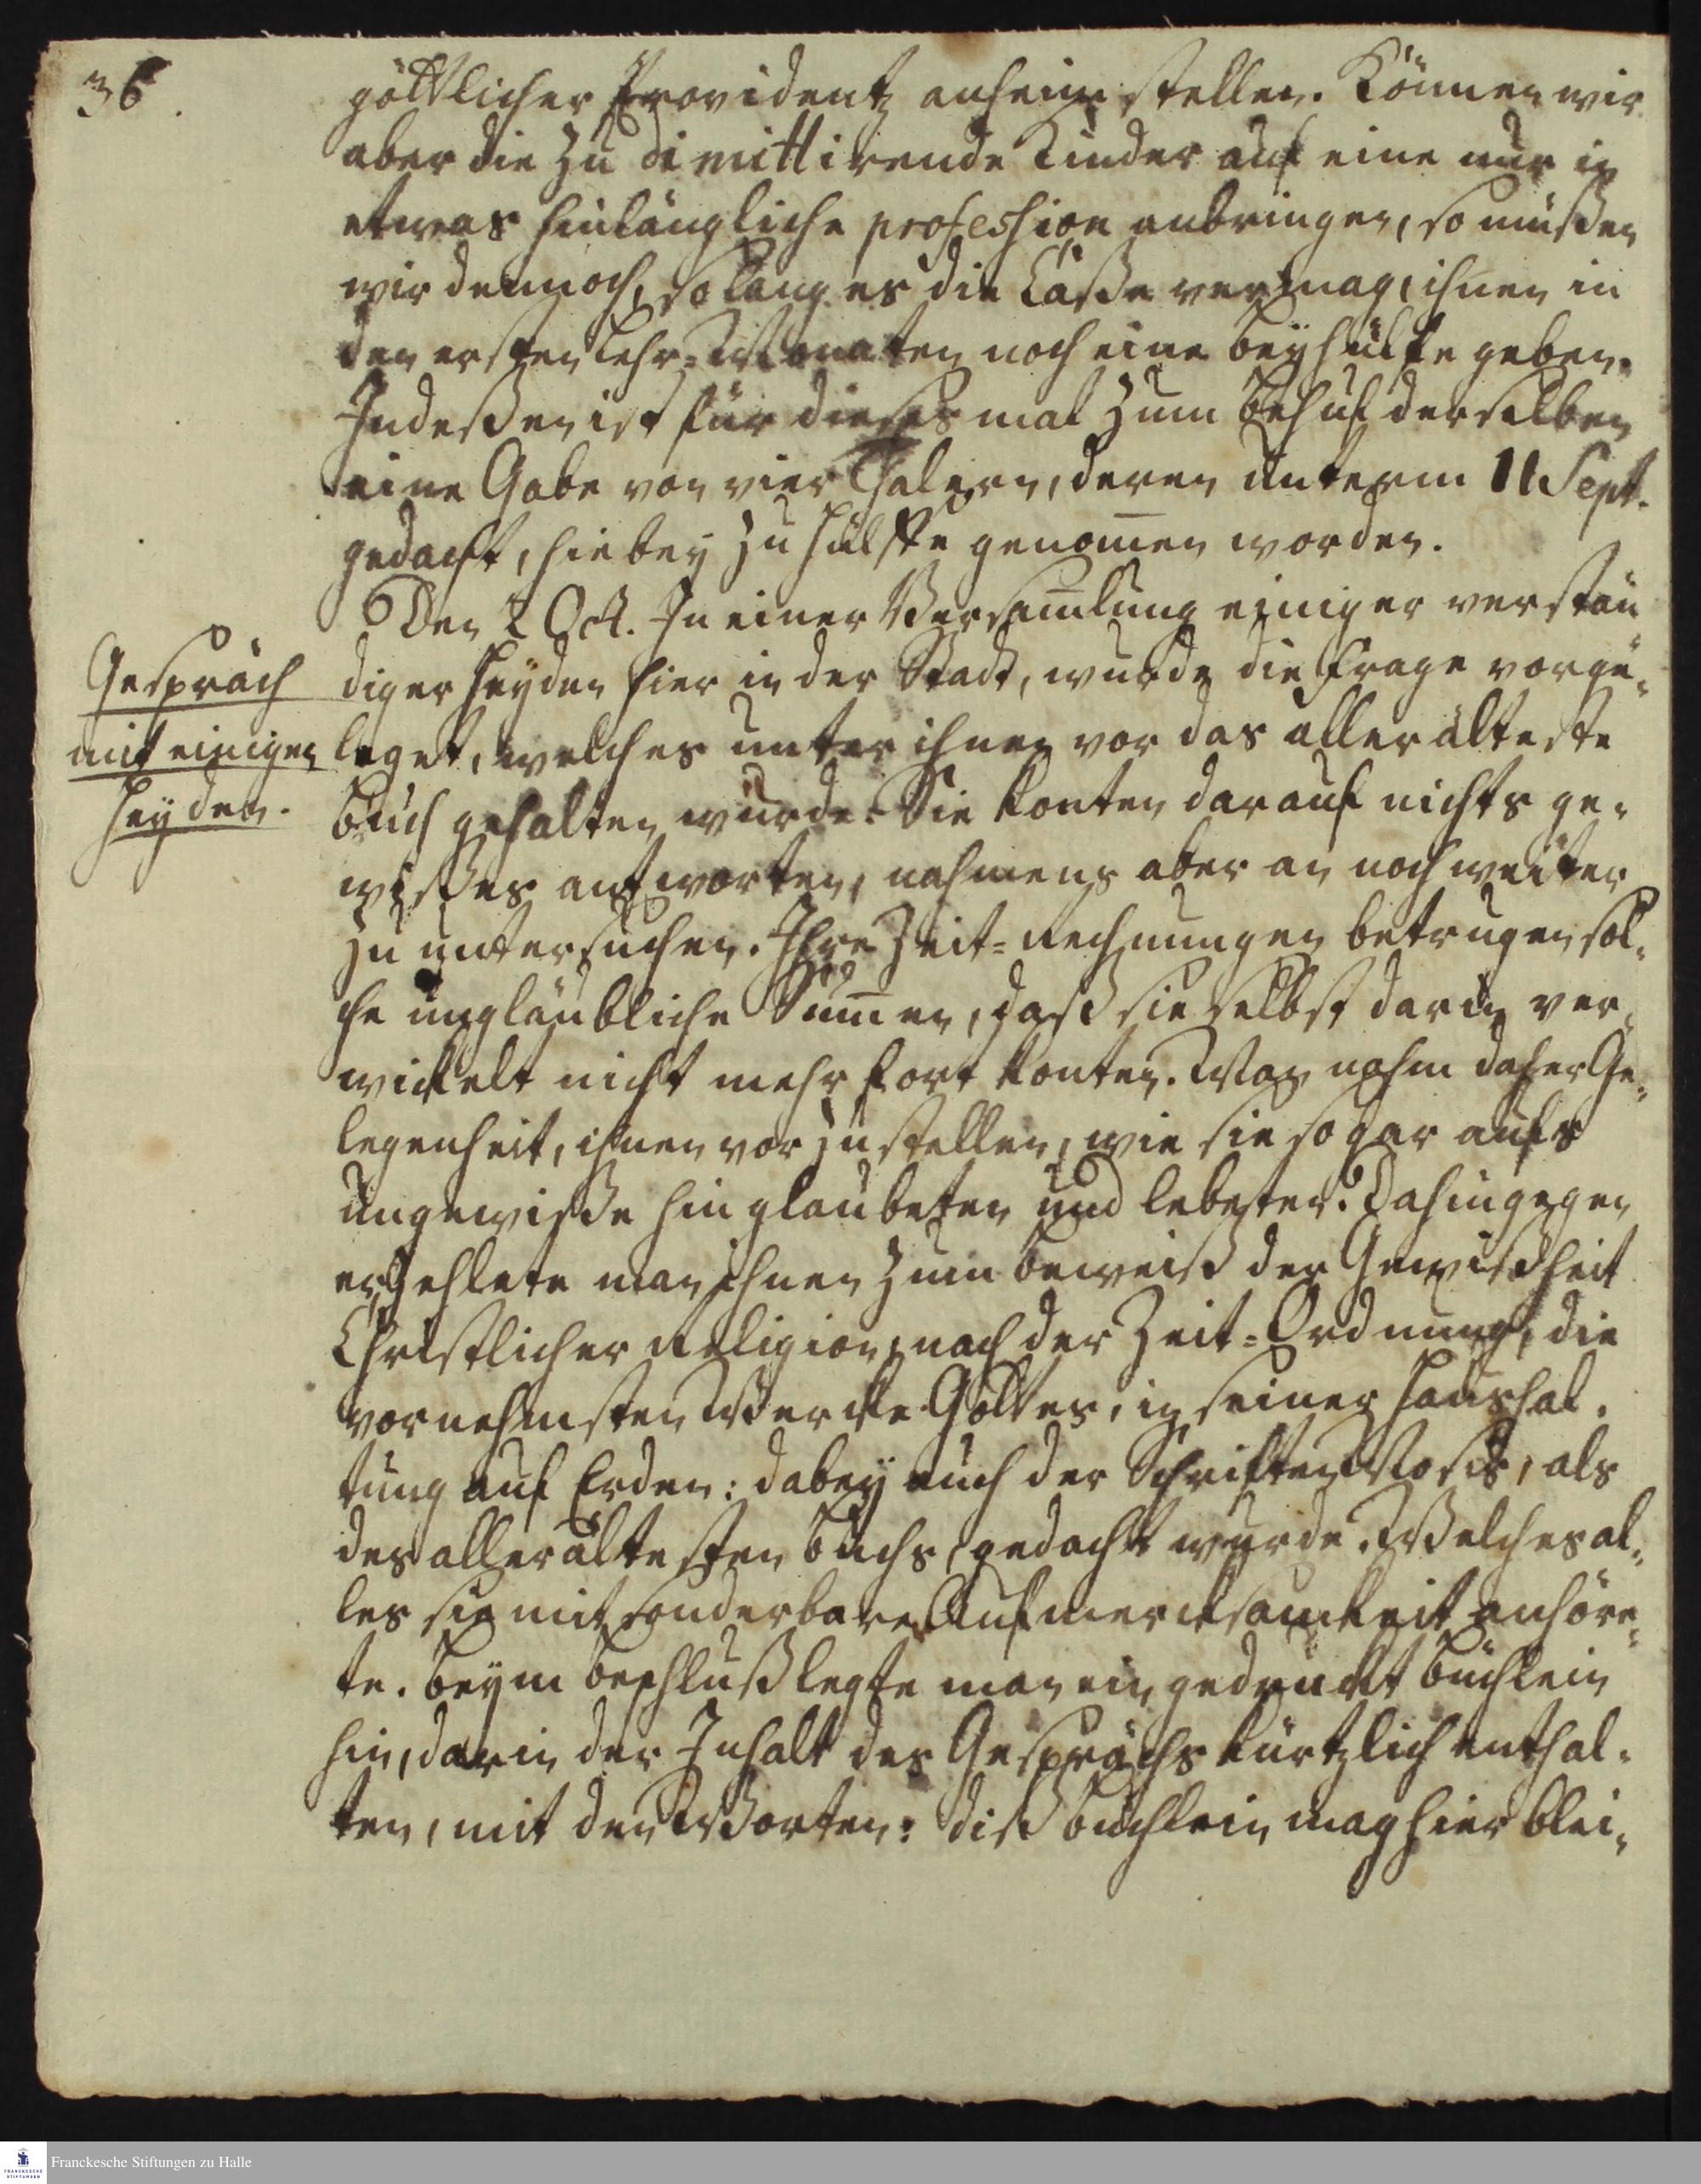 36.
göttlicher Providentz anheim stellen. Können wir
aber die zu dimittirende Kinder auf eine nur in
etwas hinlängliche profession anbringen, so müßen
wir dennoch, so lang es die Casse vermag, ihnen in
den ersten Lehr-Monaten noch eine Beyhülffe geben.
Indeßen ist für dieses mal zum Behuf derselben
eine Gabe von vier Thalern, deren unterm 11 Sept.
gedacht, hiebey zu Hülffe genom̄en worden.
Den 2 Oct. In einer Versam̄lung einiger verstän
Gespräch
mit einigen
Heyden.
diger Heyden hier in der Stadt, wurde die Frage vorge-
leget, welches unter ihnen vor das allerälteste
Buch gehalten würde. Sie konten darauf nichts ge-
wißes antworten, nahmens aber an noch weiter
zu untersuchen. Ihre Zeit-Rechnungen betrugen sol-
che ungläubliche Sum̄en, daß sie selbst darin ver-
wickelt nicht mehr fort konten. Man nahm daher Ge-
legenheit, ihnen vorzustellen, wie sie sogar aufs
ungewiße hin glaubeten und lebeten. Dahingegen
erzehlete man ihnen zum Beweiß der Gewißheit
Christlicher Religion, nach der Zeit-Ordnung, die
vornehmsten Wercke Gottes, in seiner Haushal-
tung auf Erden: dabey auch der Schriften Mosis, als
des allerältesten Buchs, gedacht wurde. Welches al-
les sie mit sonderbarer Aufmercksamkeit anhöre-
te. Beym Beschluß legte man ein gedruckt Büchlein
hin, darin der Inhalt des Gesprächs kürtzlich enthal-
ten, mit den Worten: diß Büchlein mag hier blei-
Franckesche Stiftungen zu Halle